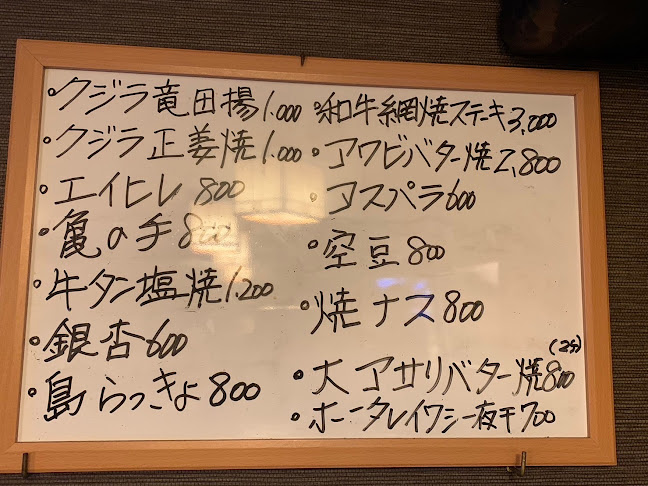 ・クジラ竜田揚1.000
・クジラ正姜焼1.000
・エイヒレ800
・亀の手800
・牛タン塩焼1.200
・銀杏600
・島らっきょ800
・和牛網焼ステーキ3,000
・アワビバター焼2,800
・アスパラ600
・空豆800
・焼ナス800
・大アサリバター焼800
・ホータレイワシ一夜干700